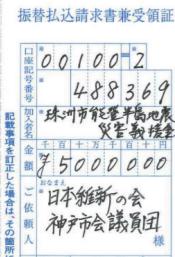 振替払込請求書兼受領証
口座記号番号 00100=2
488369
加入者名 珠洲市能登半島地震
災害義援金
金額 千百十万千百十円
¥500000
ご依頼人 おなまえ
日本維新の会
神戸市会議員団
様
記載事項を訂正した場合は、その箇所に